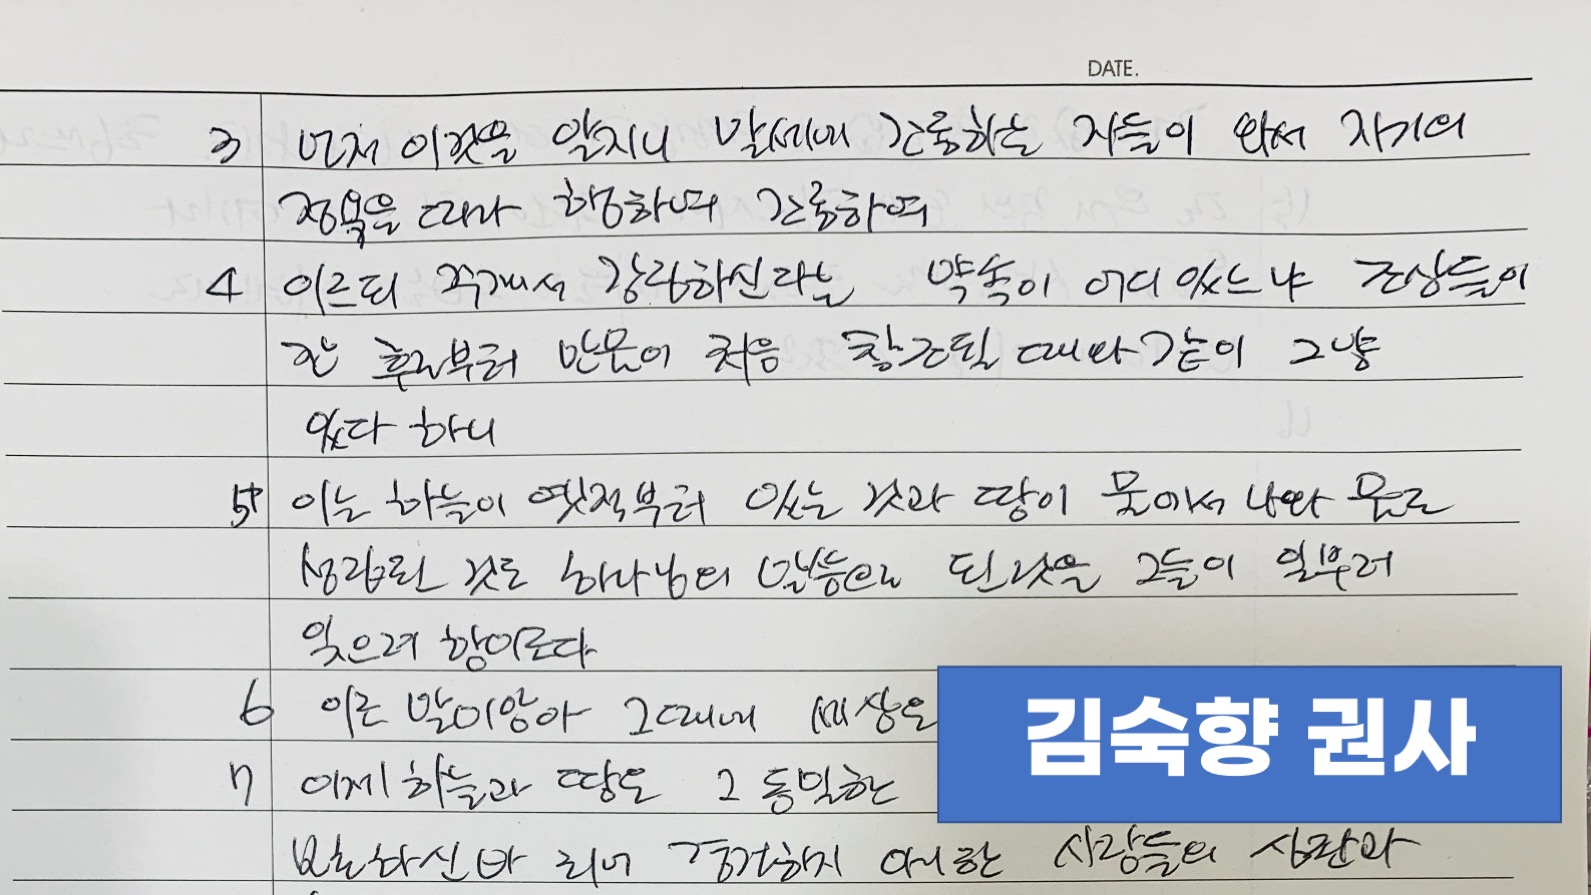 DATE.
3 먼저 이것을 알지니 말세에 조롱하는 자들이 와서 자기의
정욕을 따라 행하며 조롱하여
4 이르되 주께서 강림하신다는 약속이 어디 있느냐 조상들이
잔 후로부터 만물이 처음 창조될 때와 같이 그냥
있다 하니
5 이는 하늘이 옛적부터 있는 것과 땅이 물에서 나와 물로
성립된 것도 하나님의 말씀으로 된 것을 그들이 일부러
잊으려 함이로다
6 이로 말미암아 그때에 세상은
7 이제 하늘과 땅도 그 동일한
김숙향 권사
보호하신 바 되어 경건하지 아니한 사람들의 심판과